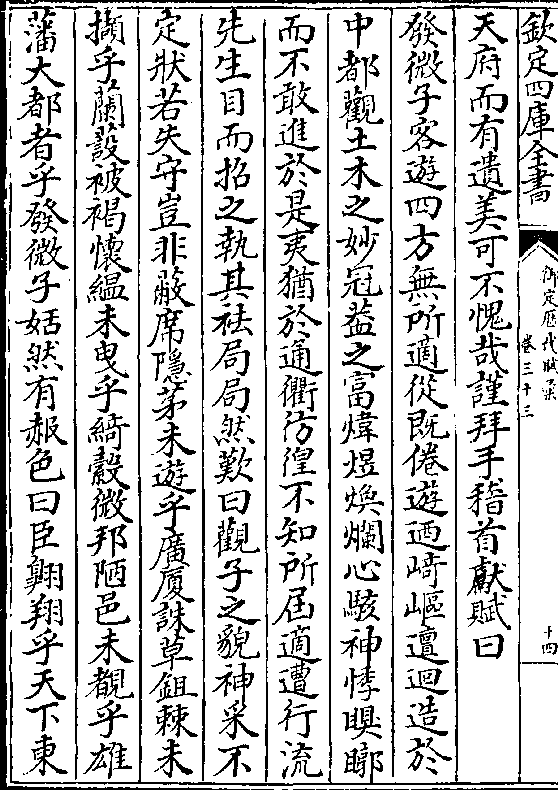 欽定四庫全書
御定歷代賦彙
卷三十三
十四
天府而有遺美可不愧哉謹拜手稽首獻賦曰
發微子客遊四方無所適從既倦遊迺﨑嶇邅迴造於
中都觀土木之妙冠蓋之富煒煜煥爛心駭神悸瞁䁨
而不敢進於是夷猶於通衢彷徨不知所屆適遭行流
先生目而招之執其袪局局然歎曰觀子之貌神采不
定狀若失守豈非蔽席隱茅未遊乎廣厦誅草鉏棘未
擷乎蘭蔎被褐懷緼未曳乎綺縠微邦陋邑未覩乎雄
藩大都者乎發微子姡然有赧色曰臣翺翔乎天下東